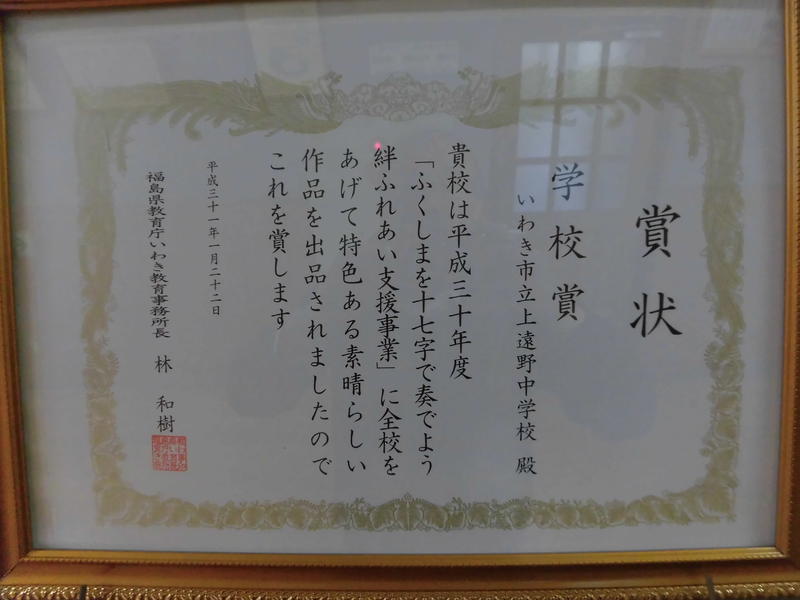 賞状
学校賞
いわき市立上遠野中学校 殿
貴校は平成三十年度
「ふくしまを十七字で奏でよう
絆ふれあい支援事業」に全校を
あげて特色ある素晴らしい
作品を出品されましたので
これを賞します
平成三十一年一月二十二日
福島県教育庁いわき教育事務所長 林 和樹